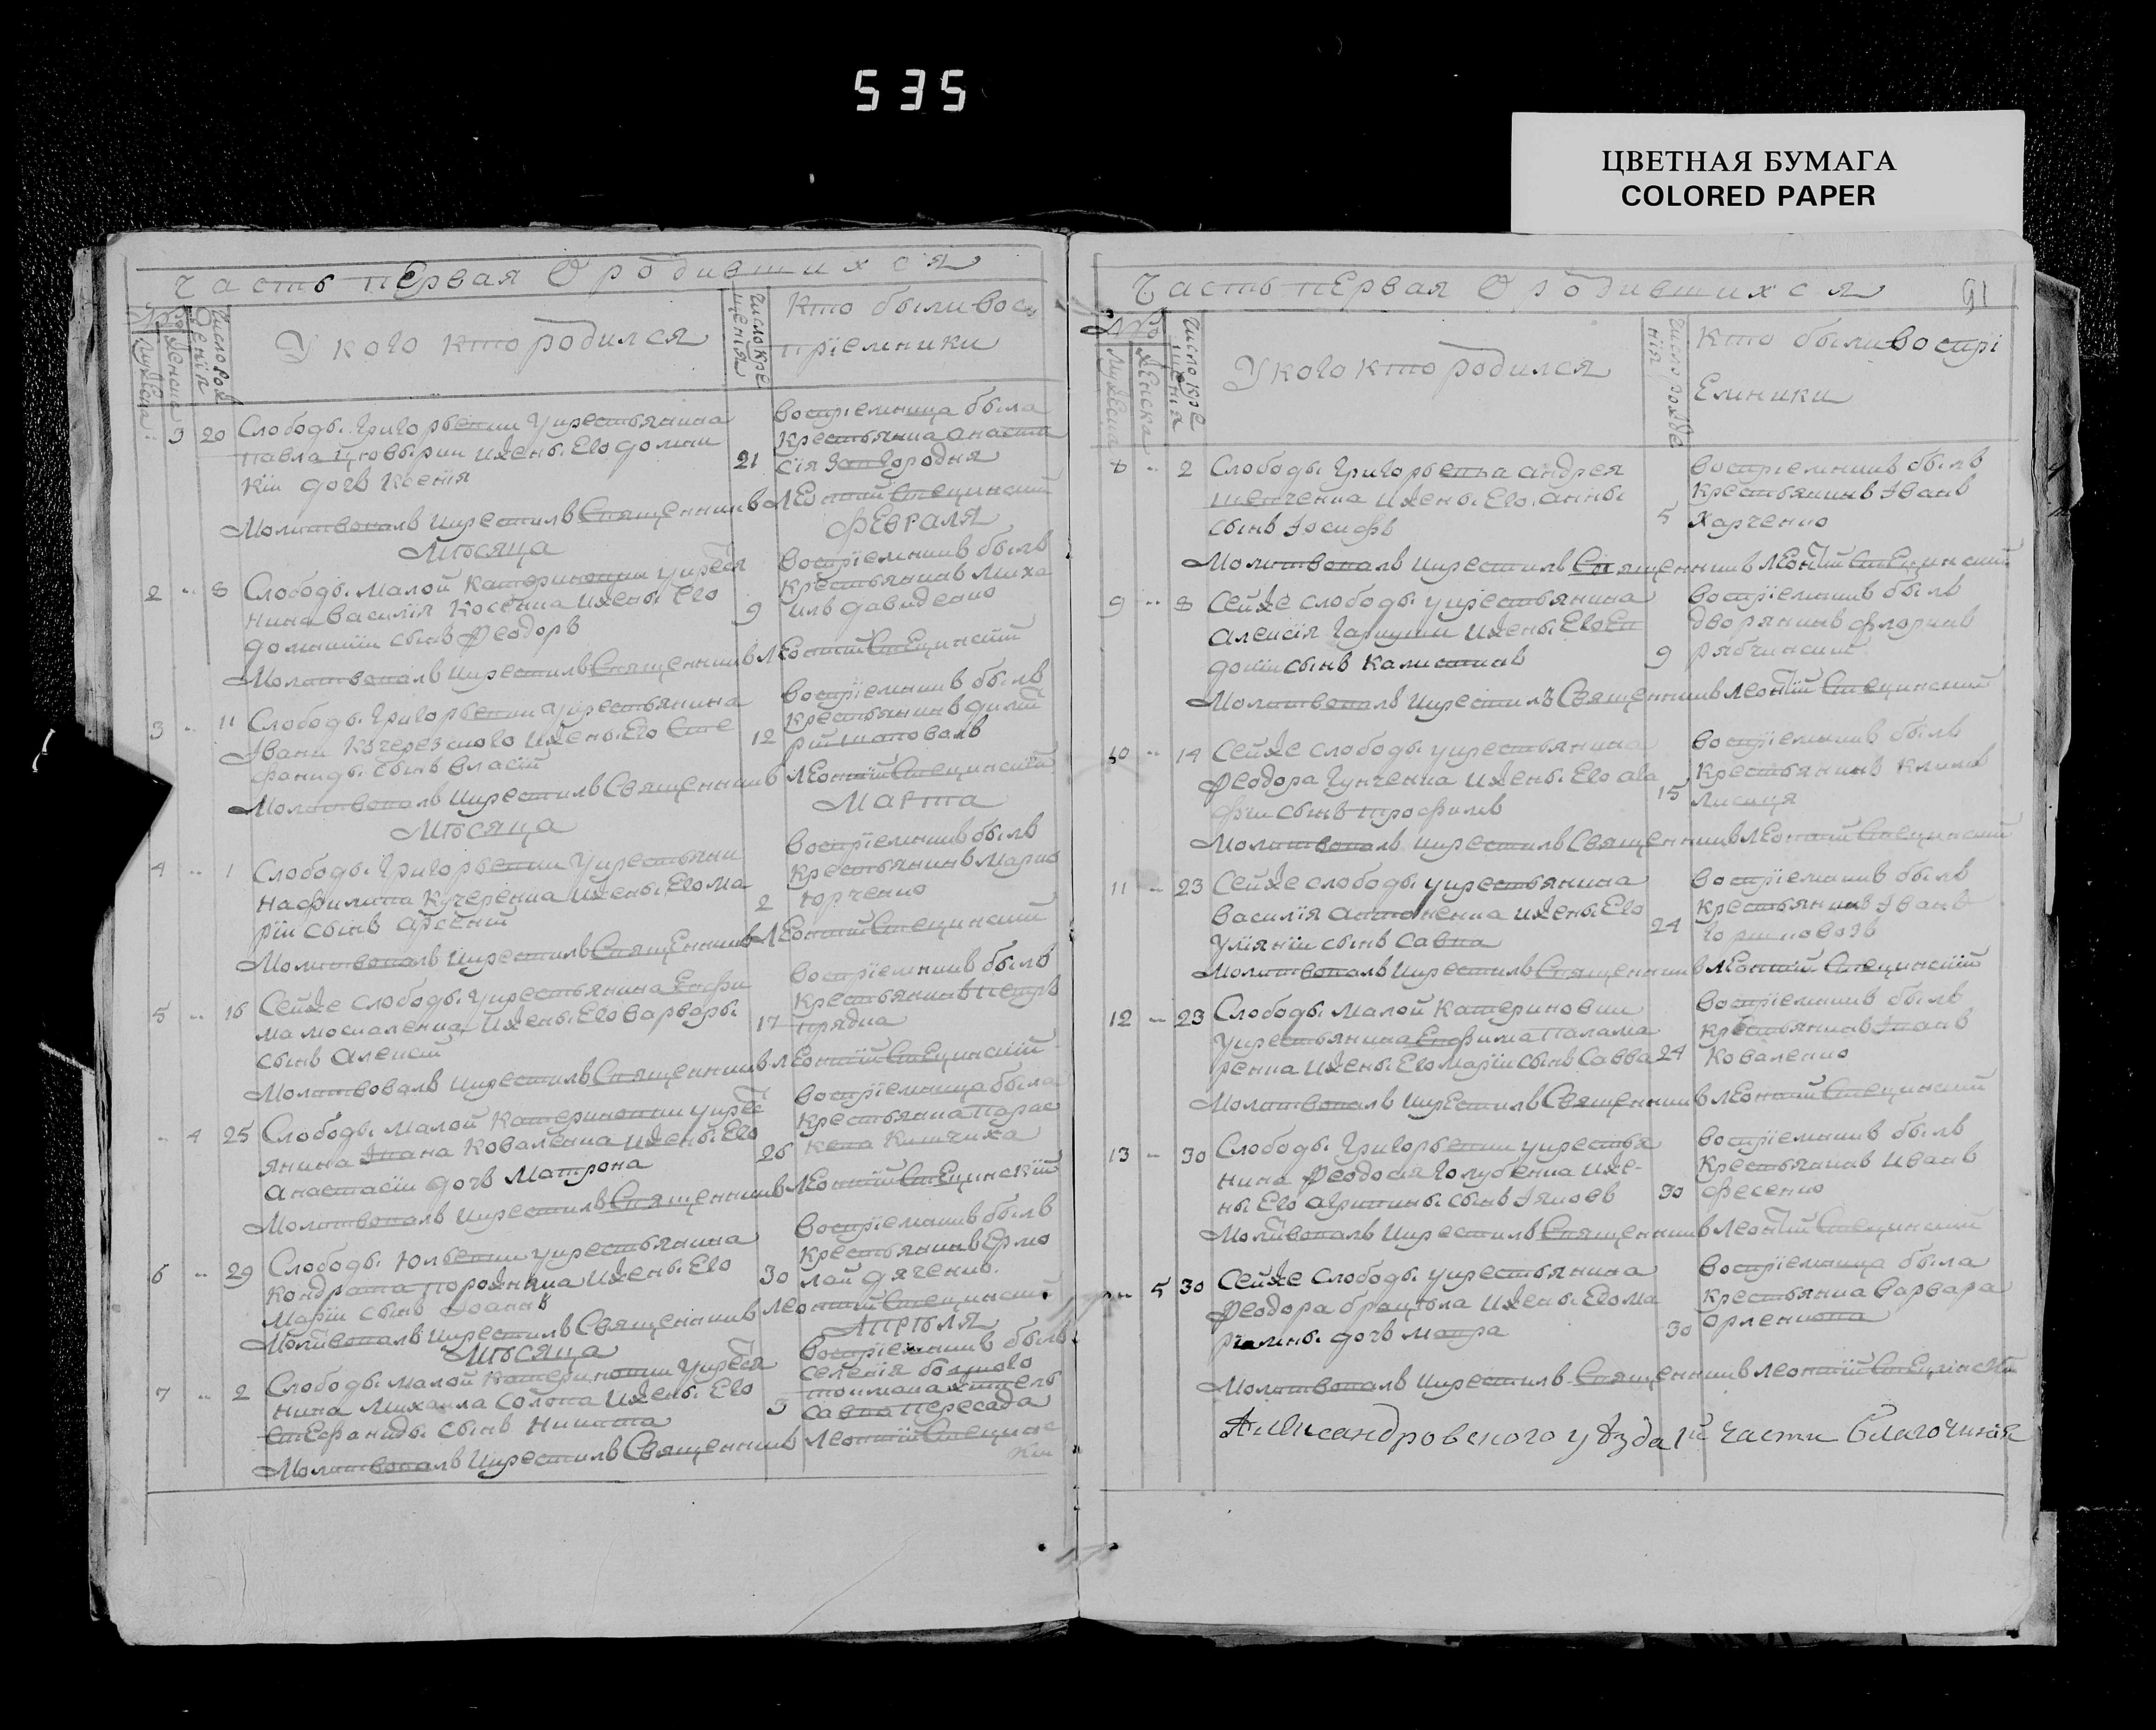 535
ЦВЕТНАЯ БУМАГА
COLORED PAPER
Часть первая О родившихся
Число рожденія
У кого кто родился
Число крещенія
Кто были вос
пріемники
3 20 Слободы Григорьевки у крестьянина
Павла и жены его домни
кіи дочь Ксенія
21
Воспріемница была
крестьянка Анаста
сія Загородня
Молитвовалъ и крестилъ Священникъ Леонтій
Мѣсяца Февраля
2 8 Слободы Малой Катериновки у крестя
нина Василія Косенка и жены его
домникіи сынъ Феодоръ
9
Воспріемникъ былъ
крестьянинъ Миха
илъ Давиденко
Молитвовалъ и крестилъ Священникъ Леонтій
3 11 Слободы Григорьевки у крестьянина
Івана и жены его Сте
фаниды сынъ Власій
12
Воспріемникъ былъ
крестьянинъ Дмит
рій Шаповалъ
Молитвовалъ и крестилъ Священникъ Леонтій
Мѣсяца Марта
4 1 Слободы Григорьевки у крестьяни
на Филипа Кучеренка и жены его Ма
ріи сынъ Арсеній
2
Воспріемникъ былъ
крестьянинъ Марко
Юрченко
Молитвовалъ и крестилъ Священникъ Леонтій
5 16 Сейже слободы у крестьянина Евфи
ма Москаленка и жены его Варвары
сынъ Алексій
17
Воспріемникъ былъ
крестьянинъ Петръ
Прядка
Молитвовалъ и крестилъ Священникъ Леонтій
4 25 Слободы Малой Катериновки у крест
янина Ивана Коваленка и жены его
Анастасіи дочь Матрона
26
Воспріемница была
крестьянка Парас
кева
Молитвовалъ и крестилъ Священникъ Леонтій
6 29 Слободы Юльевки у крестьянина
Кондрата и жены его
Маріи сынъ Іоаннъ
30
Воспріемникъ былъ
крестьянинъ Ермо
лай Дяченко
Молитвовалъ и крестилъ Священникъ Леонтій
Мѣсяца Апрѣля
7 2 Слободы Малой Катериновки у крестя
нина Михаила и жены его
Стефаниды сынъ Никита
3
Воспріемникъ былъ
селенія
Токмака житель
Савва Пересада
Молитвовалъ и крестилъ Священникъ Леонтій
Часть первая О родившихся
91
У кого кто родился
Кто были воспрі
емники
8 2 Слободы Григорьевки Андрея
Шевченка и жены его Анны
сынъ Іосифъ
5
Воспріемникъ былъ
крестьянинъ Іванъ
Харченко
Молитвовалъ и крестилъ Священникъ Леонтій
9 8 Сейже слободы у крестьянина
Алексія и жены его Ев
докіи сынъ Калистратъ
9
Воспріемникъ былъ
дворянинъ Флоръ
Рябчинскій
Молитвовалъ и крестилъ Священникъ Леонтій
10 14 Сейже слободы у крестьянина
Феодора Гунченка и жены его Ага
фіи сынъ Трофимъ
15
Воспріемникъ былъ
крестьянинъ Климъ
Лисиця
Молитвовалъ и крестилъ Священникъ Леонтій
11 23 Сейже слободы у крестьянина
Василія Антоненка и жены его
Уліяніи сынъ Савва
24
Воспріемникъ былъ
крестьянинъ Іванъ
Молитвовалъ и крестилъ Священникъ Леонтій
12 23 Слободы Малой Катериновки
у крестьянина Евфима Палама
ренка и жены его Маріи сынъ Савва
24
Воспріемникъ былъ
крестьянинъ Іванъ
Коваленко
Молитвовалъ и крестилъ Священникъ Леонтій
13 30 Слободы Григорьевки у крестья
нина Феодосія Голубенка и же-
ны его Агрипины сынъ Іяковъ
30
Воспріемникъ былъ
крестьянинъ Иванъ
Фесенко
Молитвовалъ и крестилъ Священникъ Леонтій
5 30 Сейже слободы у крестьянина
Феодора и жены его Ма
дочь Мавра
30
Воспріемница была
крестьянка Варвара
Орленкова
Молитвовалъ и крестилъ Священникъ Леонтій
Александровского уѣзда 1й части Благочиния